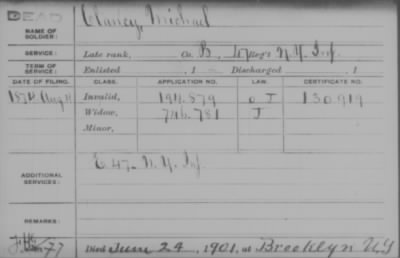 DEAD
NAME OF SOLDIER: Clancy, Michael
SERVICE: Late rank, Co. B, 47 Reg't N.Y. Inf.
TERM OF SERVICE: Enlisted , 1 Discharged , 1
DATE OF FILING. CLASS. APPLICATION NO. LAW. CERTIFICATE NO.
1874 Aug Invalid, 194.879 J 130.919
Widow, 746.781 J
Minor,
ADDITIONAL SERVICES: E 47 N.Y. Inf
REMARKS:
77 Died June 24, 1901, at Brooklyn N.Y